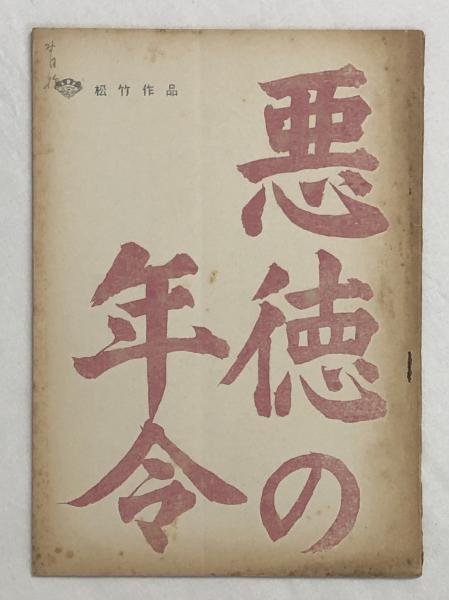 悪徳の
年令
松竹作品